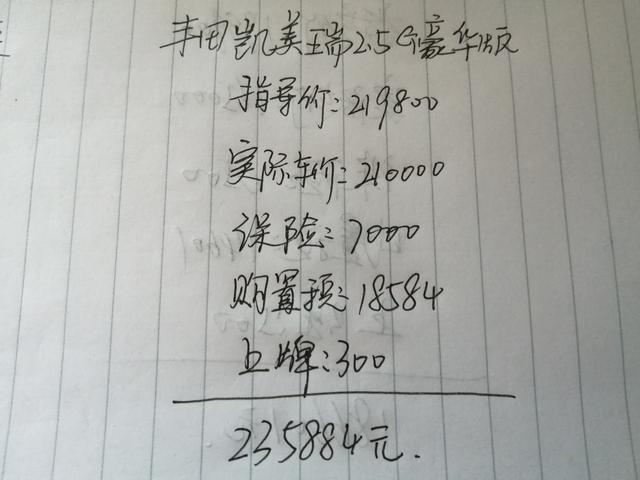 丰田凯美瑞2.5G豪华版
指导价:219800
实际车价:210000
保险:7000
购置税:18584
上牌:300
235884元.